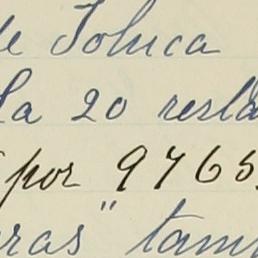 de Toluca
la 20 resla
por 9765
eras" tam